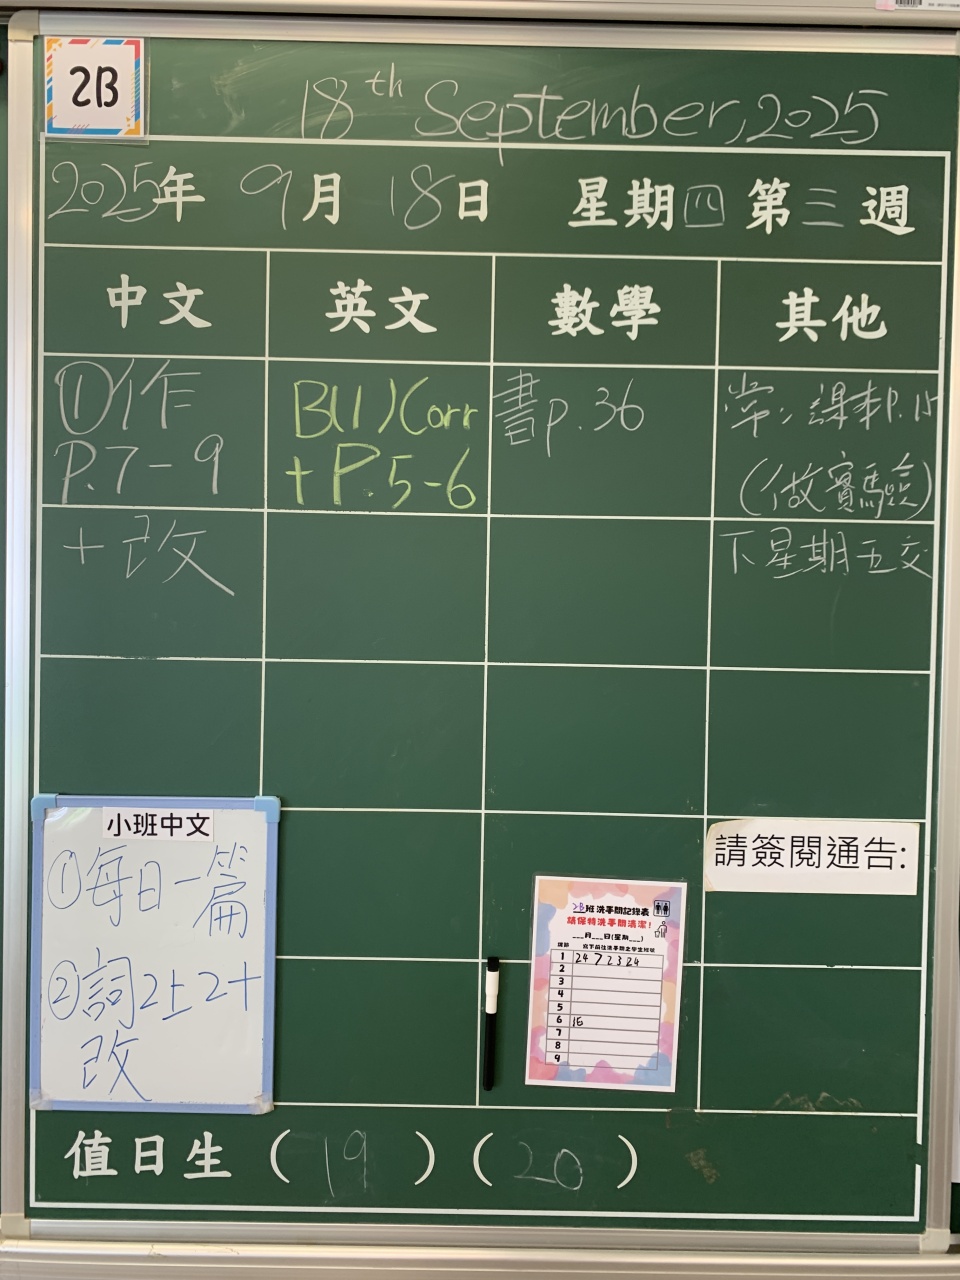 2B
18th September, 2025
2025年 9月 18日 星期四 第三週
中文 英文 數學 其他
①作
P.7-9
+改
B(1)Corr
+P.5-6
書p.36
常、課本P.15
(做實驗)
下星期五交
小班中文
①每日一篇
②詞2上2+
改
請簽閱通告:
2B班洗手間記錄表
請保持洗手間清潔!
___月___日(星期___)
課節
1 24 7 23 24
2
3
4
5
6 16
7
8
9
值日生 (19) (20)